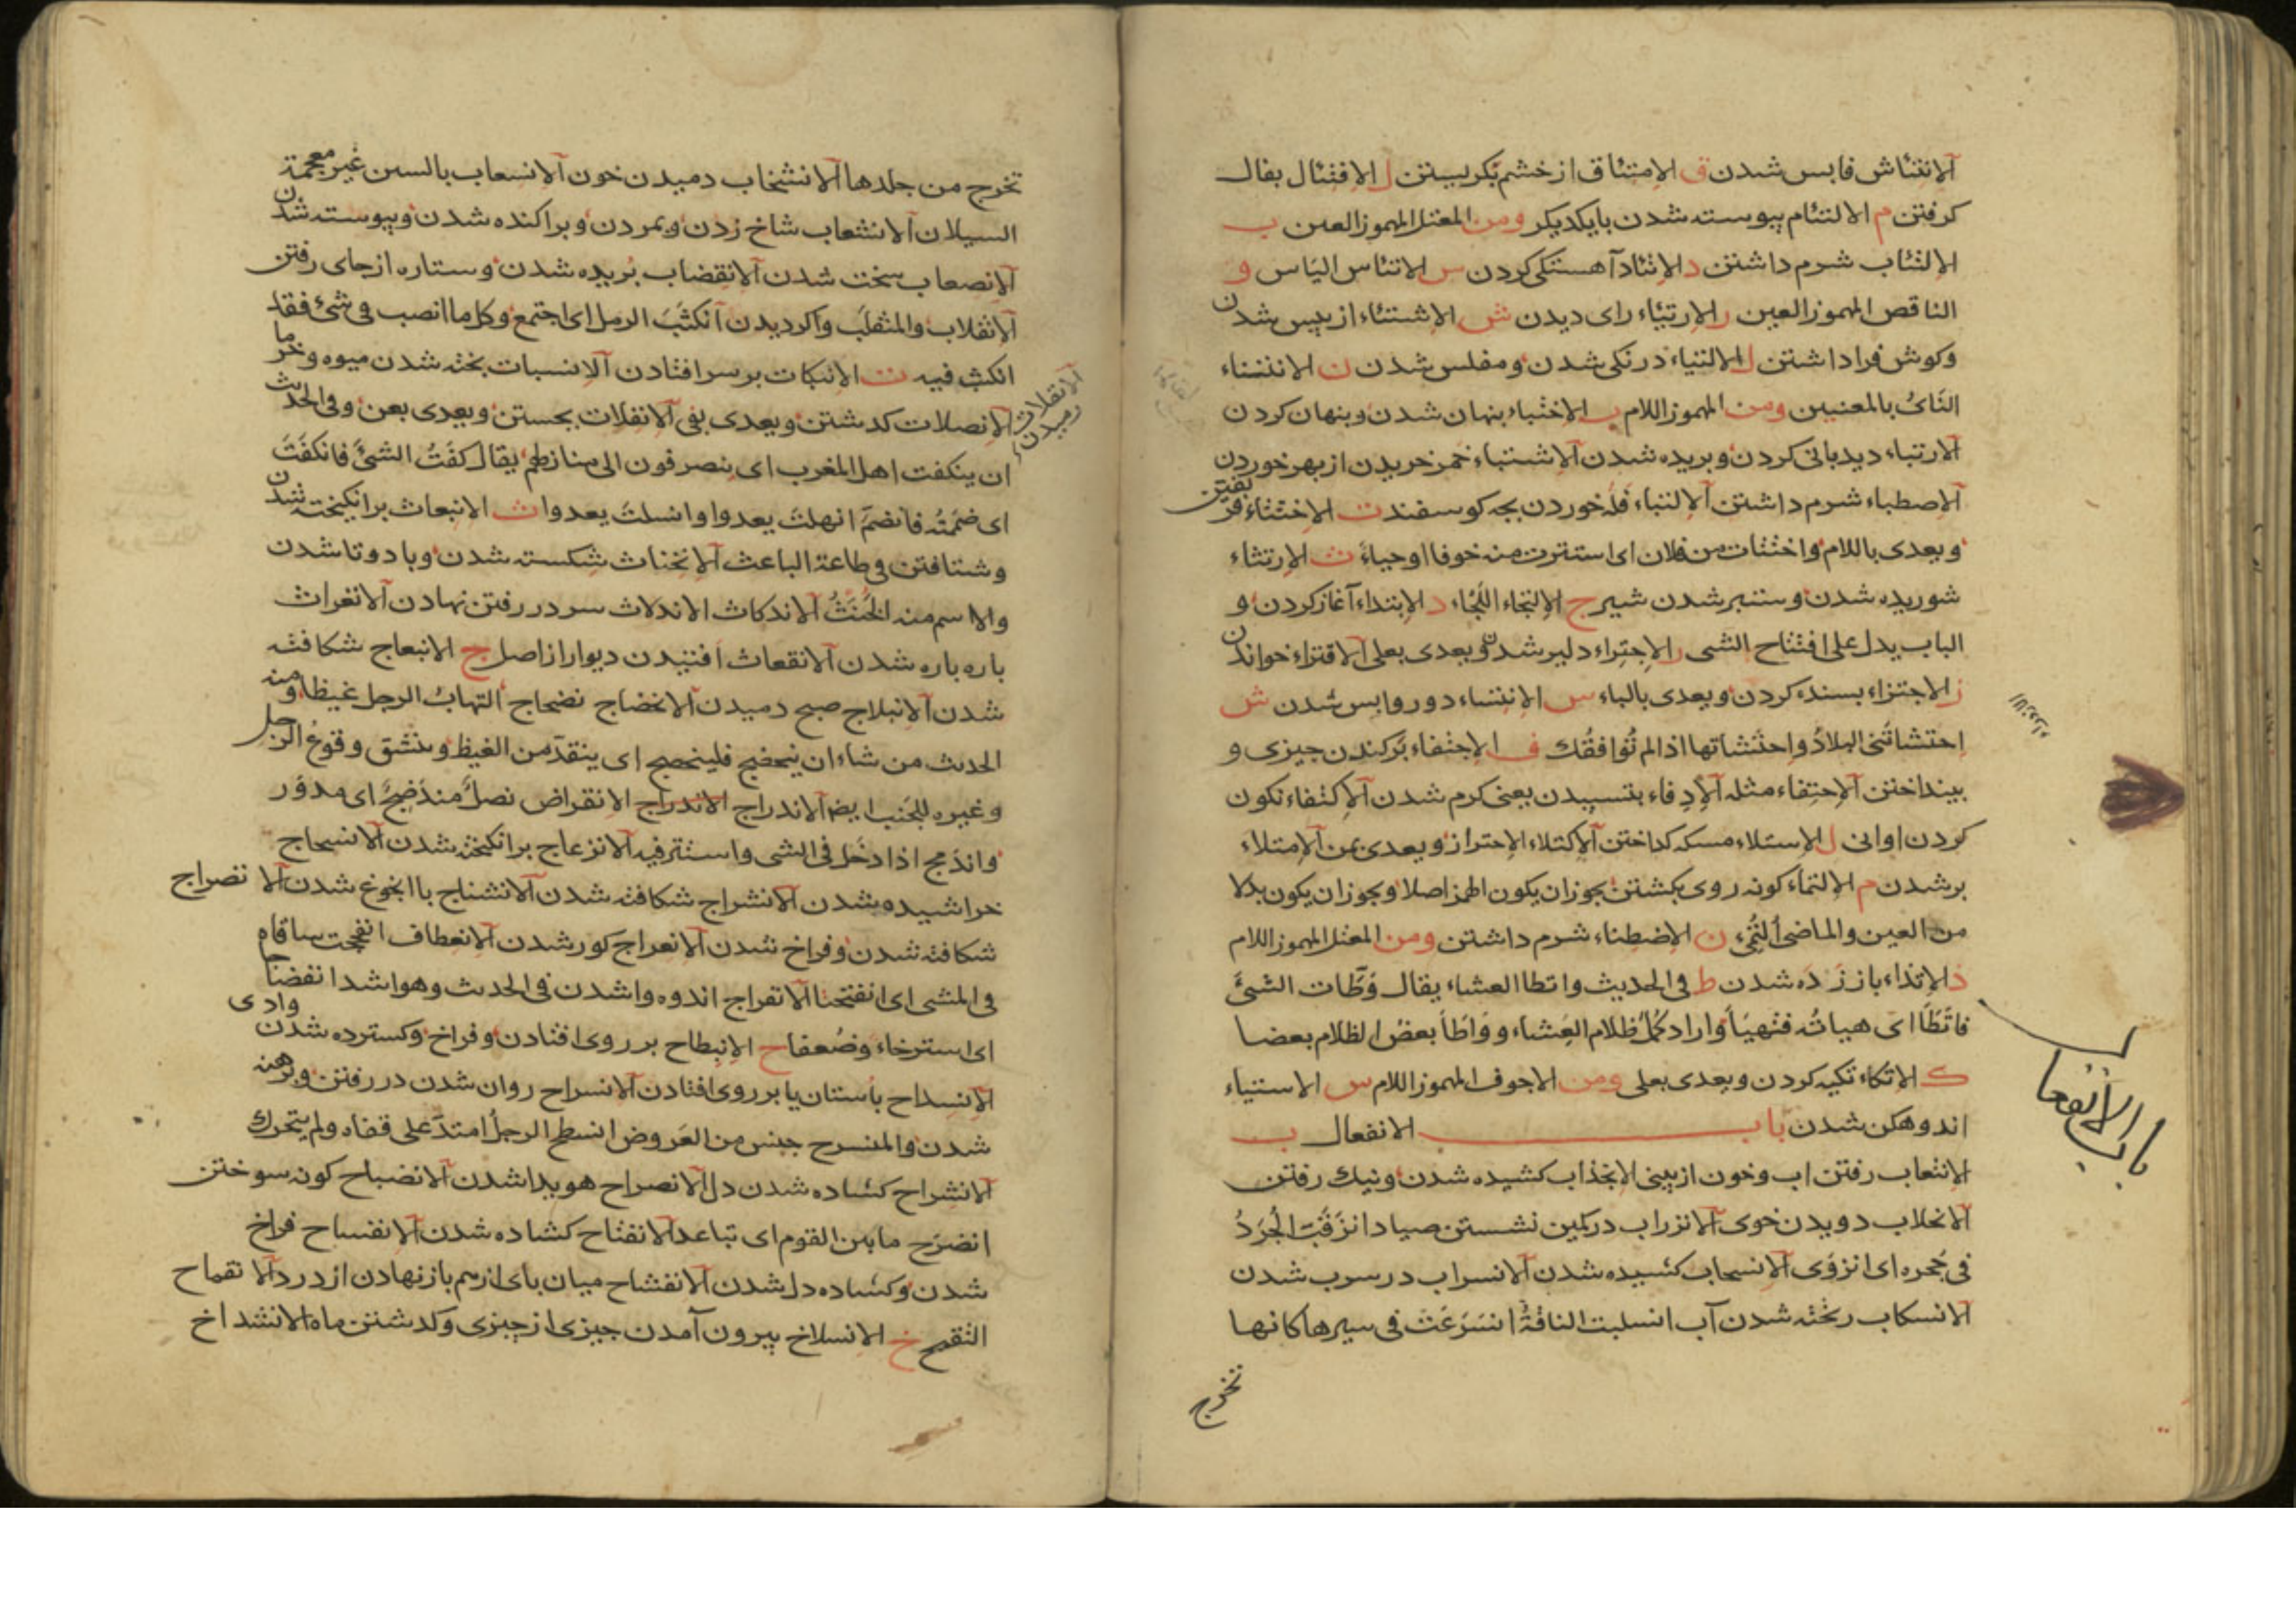 الانتئاش فابس شدن ق الامتئاق از خشم بكريستن ل الافتئال بفال
كرفتن م الالتئام پيوسته شدن بايكديكر ومن المعتل المهموز العين ب
الاتئاب شرم داشتن د الاتئاد آهستكى كردن س الاتئاس الياس و
الناقص المهموز العين ر الارتياء راى ديدن ش الاشتئاء از پيس شدن
وكوش فرا داشتن ل الالتياء درنكى شدن ومفلس شدن ن الانتئاء
الناى بالمعنيين ومن المهموز اللام ب الاختباء بنهان شدن وبنهان كردن
الارتباء ديدبانى كردن وبريده شدن الاستباء خمر خريدن از بهر خوردن
الاصطباء شرم داشتن الالتباء فله خوردن بچه كوسفند ت الاختتاء فريفتن
ويعدى باللام واختتات من فلان اى استترت منه خوفا او حياء ث الارتثاء
شوريده شدن وستبر شدن شير ج الالتجاء اللجاء د الابتداء آغاز كردن و
الباب يدل على افتتاح الشى ر الاجتراء دلير شدن ويعدى بعلى الاقتراء خواندن
ز الاجتزاء بسنده كردن ويعدى بالباء س الانتساء دور وابس شدن ش
احتشاتنى البلاد واحتشاتها اذا لم توافقك ف الاجتفاء بركندن چيزى و
بينداختن الاحتفاء مثله الادفاء بتسبيدن يعنى كرم شدن الاكتفاء نكون
كردن اوانى ل الاستلاء مسكه كداختن الاكتلاء الاحتراز ويعدى بمن الامتلاء
برشدن م الالتماء كونه روى بكشتن يجوز ان يكون الهمز اصلا ويجوز ان يكون بدلا
من العين والماضى التمئ ن الاضطناء شرم داشتن ومن المعتل المهموز اللام
ذ الاتذاء باز زده شدن ط فى الحديث واتطا العشاء يقال وطات الشئ
فاتطا اى هياته فتهيا واراد كمل ظلام العشاء وواطا بعض الظلام بعضا
ك الاتكاء تكيه كردن ويعدى بعلى ومن الاجوف المهموز اللام س الاستياء
اندوهكن شدن باب الانفعال ب
الانثعاب رفتن اب وخون از بينى الانجذاب كشيده شدن ونيك رفتن
الانحلاب دويدن خوى الانزراب در كمين نشستن صياد انزقب الجرذ
فى جحره اى انزوى الانسحاب كشيده شدن الانسراب در سرب شدن
الانسكاب ريخته شدن آب انسلبت الناقة اسرعت فى سيرها كانها
تخرج
باب الانفعال
تخرج من جلدها الانشخاب دميدن خون الانسعاب بالسين غير معجمة
السيلان الانشعاب شاخ زدن وبمردن وبراكنده شدن وپيوسته شدن
الانصعاب سخت شدن الانقضاب بريده شدن وستاره از جاى رفتن
الانقلاب والمنقلب واكرديدن انكثب الرمل اى اجتمع وكل ما انصب فى شئ فقد
انكثب فيه ت الانكات بر سر افتادن الانسبات پخته شدن ميوه وخرما
الانصلات كدشتن ويعدى بفى الانفلات بجستن ويعدى بعن وفى الحديث
الانفلات رميدن
ان ينكفت اهل المغرب اى ينصرفون الى منازلهم يقال كفت الشئ فانكفت
اى ضممته فانضم انهلت يعدوا وانسلت يعدوا ث الانبعاث برانكيخته شدن
وشتافتن فى طاعة الباعث الانخناث شكسته شدن وبادوتا شدن
والاسم منه الخنث الاندكاث الاندلاث سر در رفتن نهادن الانغراث
باره باره شدن الانقعاث افتيدن ديوار از اصل ج الانبعاج شكافته
شدن الانبلاج صبح دميدن الانحضاج نضحاج التهاب الرجل غيظا ومنه
الحديث من شاء ان ينحضج فلينحضج اى ينقد من الغيظ وينشق وقوع الرجل
وغيره للجنب ايضا الاندراج الاندراج الانقراض نصل مندمج اى مدور
واندمج اذا دخل فى الشى واستتر فيه الانزعاج برانكيخته شدن الانسحاج
خراشيده شدن الانشراج شكافته شدن الانشناج باانجوغ شدن الانضراج
شكافته شدن وفراخ شدن الانعراج كور شدن الانعطاف انفجت ساقاه
فى المشى اى انفتحتا الانفراج اندوه واشدن فى الحديث وهو اشد انفضاجا
اى استرخاء وضعفا ح الانبطاح بر روى افتادن وفراخ وكسترده شدن وادى
الانسداح باستان يا بر روى افتادن الانسراح روان شدن در رفتن وبرهنه
شدن والمنسرح جنس من العروض انسطح الرجل امتد على قفاه ولم يتحرك
الانشراح كشاده شدن دل الانصراح هويدا شدن الانضباح كونه سوختن
انضرح ما بين القوم اى تباعد الانفتاح كشاده شدن الانفساح فراخ
شدن وكشاده دل شدن الانفشاح ميان باى ازهم باز نهادن از درد الانقماح
التقمح خ الانسلاخ بيرون آمدن چيزى از چيزى وكدشتن ماه الانشداخ